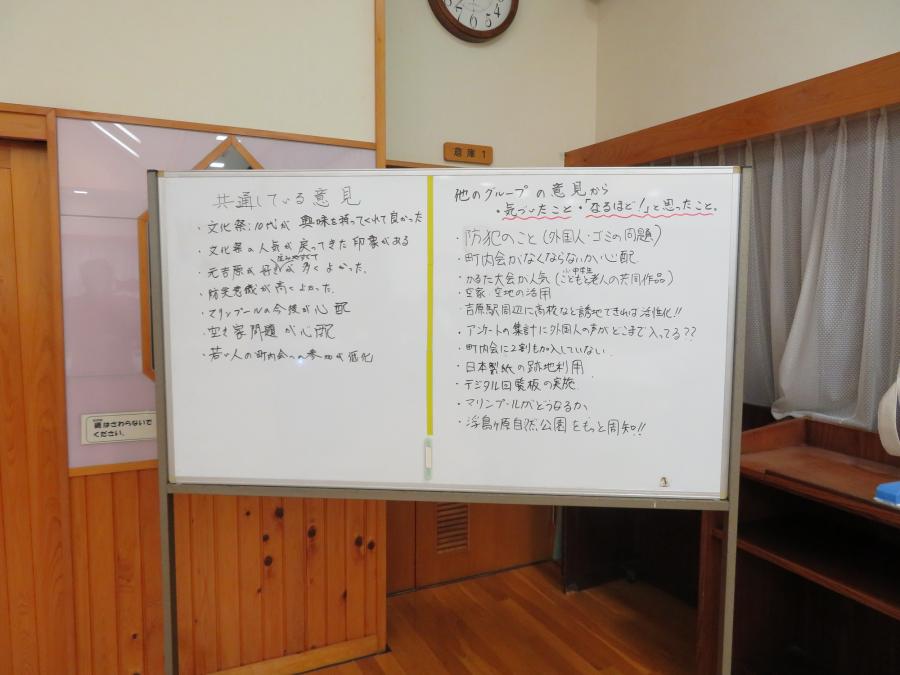 倉庫1
共通している意見
・文化祭:10代が興味を持ってくれて良かった
・文化祭の人気が戻ってきた印象がある
住みやすくて
・元吉原が好きが多くよかった。
・防災意識が高くよかった。
・マリンプールの今後が心配
・空き家問題が心配
・若い人の町内会への参加が低化
他のグループの意見から
・気づいたこと・「なるほど!」と思ったこと。
・防犯のこと(外国人・ゴミの問題)
・町内会がなくならないか心配
小中学生
・かるた大会が人気(こどもと老人の共同作品)
・空家・空地の活用
・吉原駅周辺に高校など誘地できれば活性化!!
・アンケートの集計に外国人の声がどこまで入ってる??
・町内会に2割も加入していない
・日本製紙の跡地利用
・デジタル回覧板の実施
・マリンプールがどうなるか
・浮島ヶ原自然公園をもっと周知!!
鏡はさわらないで
ください。